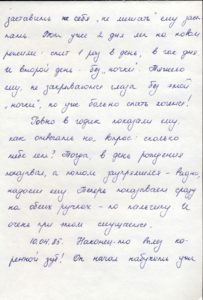 заставить не себя „не мешать" ему зас-
пать. Эти уже 2 дня он на новом
режиме: спит 1 раз в день, в час дня.
И второй день - без „ночки". Тяжело
ему, не закрываются глаза без этой
„ночки", но уже больно спать хочется!
Ровно в годик показали ему,
как отвечать на вопрос: сколько
тебе лет? Тогда, в день рождения
показывал, а потом заупрямился - видно,
надоело ему. Теперь показывает сразу
на обеих ручках - по пальчику. И
очень при этом смущается.
10.04.85. Наконец-то вылез ко-
ренной зуб! Он начал набухать уже